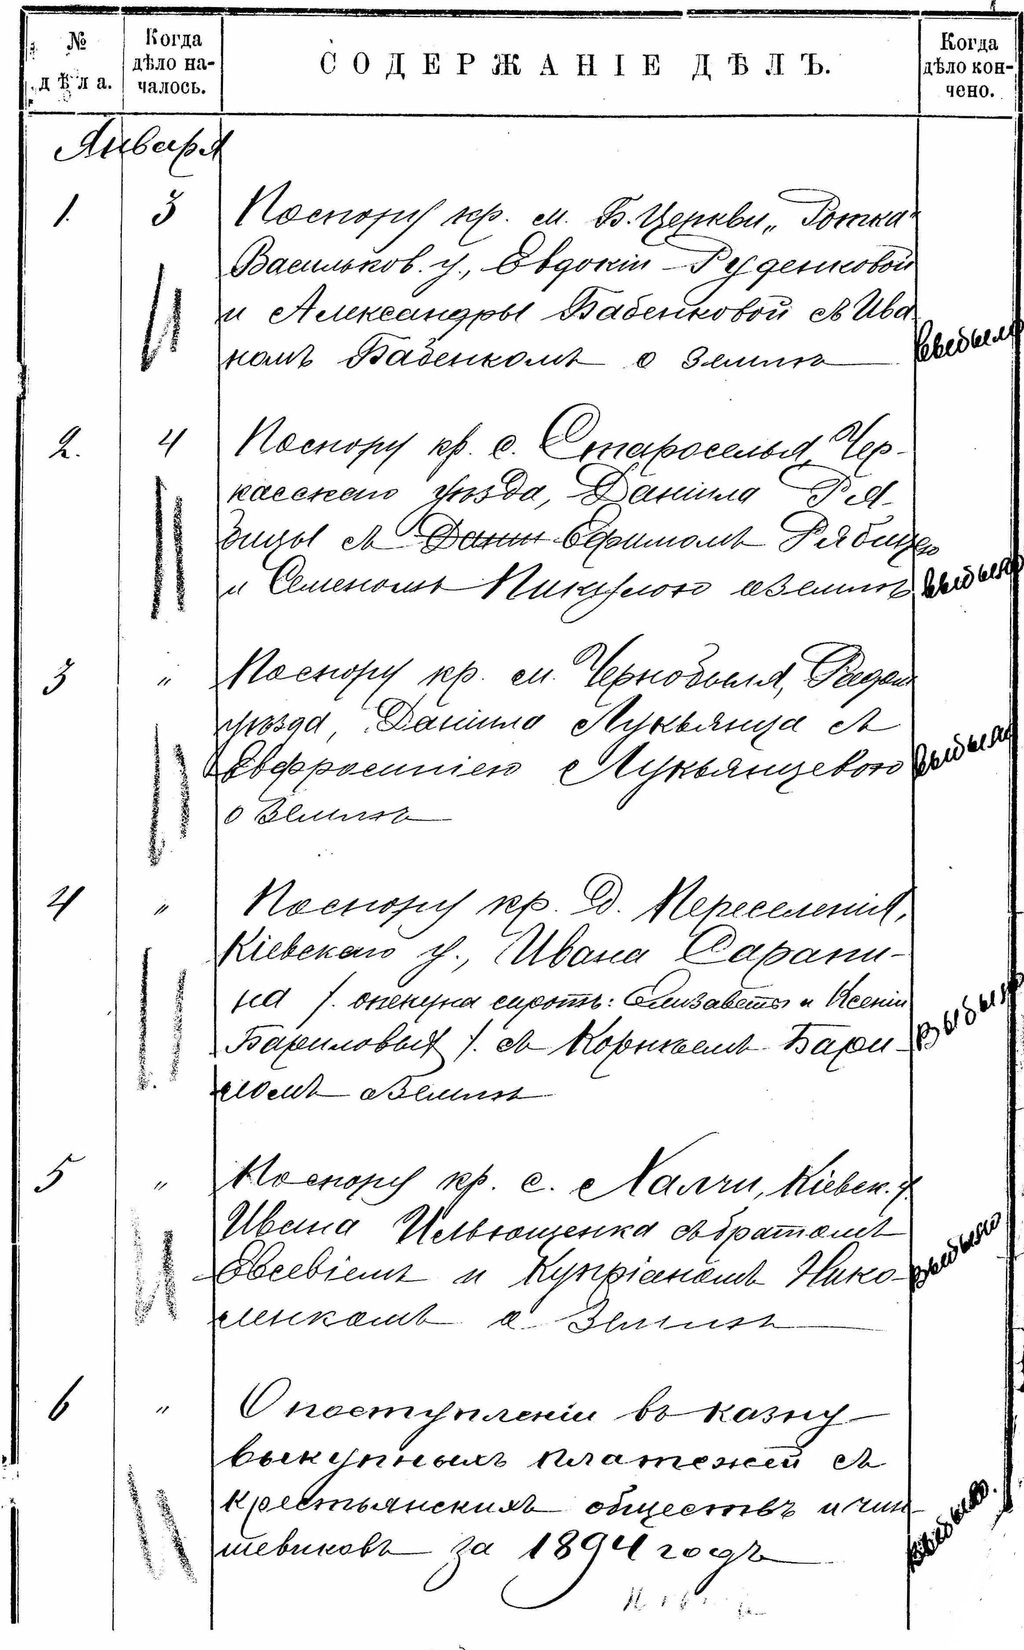 № дѣла.
Когда дѣло на-
чалось.
СОДЕРЖАНІЕ ДѢЛЪ.
Когда
дѣло кон-
чено.
Января
1. 3 По спору кр. м. Б. Церкви, „Ротка"
Васильков. у., Евдокіи Руденковой
и Александры Бабенковой съ Ива
номъ Бабенкомъ о землѣ выбыло
2. 4 По спору кр. с. Староселья, Чер-
касскаго уѣзда, Даніила Ря-
бицы съ Данил Ефимомъ Рябицею
и Семеномъ Микулою о землѣ выбыло
3 " По спору кр. м. Чернобыля, Радом
уѣзда, Даніила Лукьянца съ
Евфросиніею Лукьянцевою выбыло
о землѣ
4 " По спору кр. д. Переселенія,
Кіевскаго у., Ивана Сарапи-
на /. опекуна сиротъ: Елизаветы и Ксеніи
Бариловых /. съ Корнѣемъ Бари- выбыло
ломъ о землѣ
5 " По спору кр. с. Халчи, Кіевск. у.
Ивана Ильющенка съ братомъ
Евсевіемъ и Купріаномъ Нико- выбыло
ленкомъ о землѣ
6 " О поступленіи въ казну
выкупныхъ платежей съ
крестьянскихъ обществъ и чин-
шевиковъ за 1894 годъ выбыло.